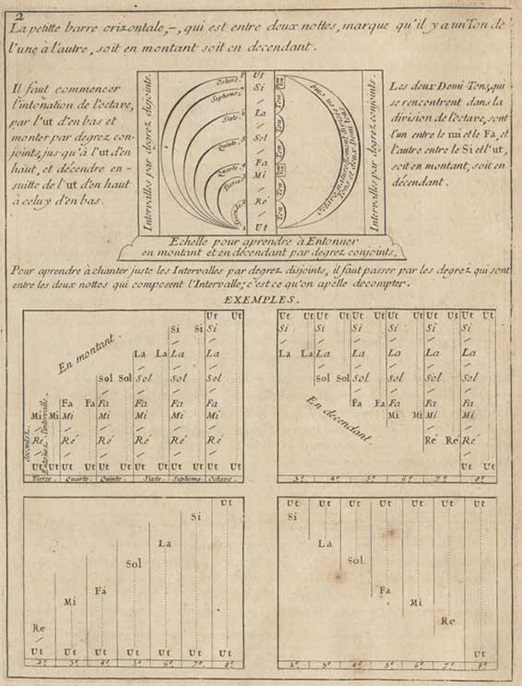 2
La petitte barre orizontale,-, qui est entre deux nottes, marque qu'il y a un Ton de
l'une à l'autre, soit en montant soit en décendant.
Il faut commencer
l'intonation de l'octave,
par l'ut d'en bas et
monter par degrez con-
joints, jus qu'à l'ut d'en
haut, et décendre en-
suitte de l'ut d'en haut
à celuy d'en bas.
Intervalles par degrez disjoints.
Octave.
Septieme.
Sixte.
Quinte.
Quarte.
Tierce.
Ut
Si
La
Sol
Fa
Mi
Ré
Ut
Intervalles par degrez conjoints.
Les deux Demi-Tons, qui
se rencontrent dans la
division de l'octave, sont
l'un entre le mi et le Fa, et
l'autre entre le Si et l'ut,
soit en montant, soit en
décendant.
Echelle pour aprendre à Entonner
en montant et en décendant par degrez conjoints.
Pour aprendre à chanter juste les Intervalles par degrez disjoints, il faut passer par les degrez qui sont
entre les deux nottes qui composent l'Intervalle; c'est ce qu'on apelle décompter.
EXEMPLES.
En montant.
Ut Ut
Si Si Si
La La La La
Sol Sol Sol Sol Sol
Fa Fa Fa Fa Fa Fa
Mi Mi Mi Mi Mi Mi Mi
Ré Ré Ré Ré Ré Ré
Ut Ut Ut Ut Ut Ut Ut Ut Ut Ut Ut Ut
Tierce. Quarte. Quinte. Sixte. Septieme. Octave.
En décendant.
Ut Ut Ut Ut Ut Ut Ut Ut Ut Ut Ut Ut
Si Si Si Si Si Si
La La La La La La La
Sol Sol Sol Sol Sol Sol
Fa Fa Fa Fa Fa
Mi Mi Mi Mi
Ré Ré Ré
Ut Ut
3e 4e 5e 6e 7e 8e
Ut
Si
La
Sol
Fa
Mi
Re
Ut Ut Ut Ut Ut Ut Ut
2e 3e 4e 5e 6e 7e 8e
Ut Ut Ut Ut Ut Ut Ut
Si
La
Sol
Fa
Mi
Re
Ut
2e 3e 4e 5e 6e 7e 8e